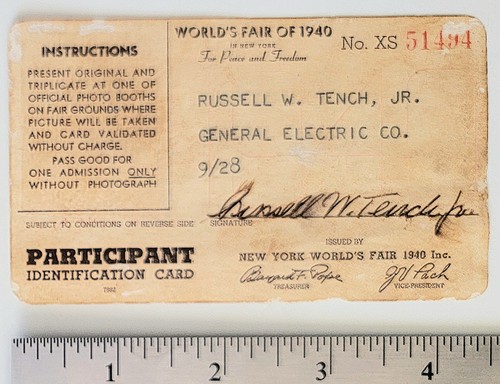 INSTRUCTIONS
PRESENT ORIGINAL AND
TRIPLICATE AT ONE OF
OFFICIAL PHOTO BOOTHS
ON FAIR GROUNDS WHERE
PICTURE WILL BE TAKEN
AND CARD VALIDATED
WITHOUT CHARGE.
PASS GOOD FOR
ONE ADMISSION ONLY
WITHOUT PHOTOGRAPH
WORLD'S FAIR OF 1940
IN NEW YORK
For Peace and Freedom
No. XS 51494
RUSSELL W. TENCH, JR.
GENERAL ELECTRIC CO.
9/28
Russell W. Tench, Jr.
SUBJECT TO CONDITIONS ON REVERSE SIDE SIGNATURE
PARTICIPANT
IDENTIFICATION CARD
ISSUED BY
NEW YORK WORLD'S FAIR 1940 Inc.
TREASURER
VICE-PRESIDENT
1 2 3 4